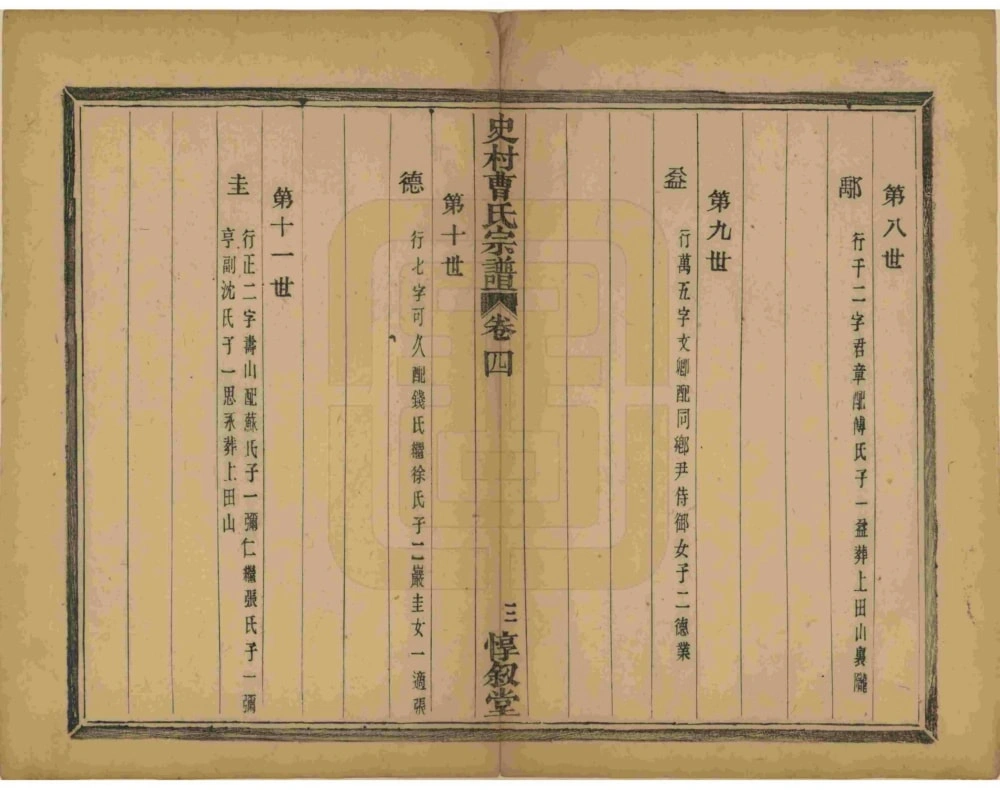 第八世
鄢
行千二字君章配傅氏子一益葬上田山裏隴
第九世
益
行萬五字文卿配同鄉尹侍御女子二德業
史村曹氏宗譜 卷四
三 惇叙堂
第十世
德
行七字可久配錢氏繼徐氏子二巖圭女一適張
第十一世
圭
行正二字壽山配蘇氏子一彌仁繼張氏子一彌
亨副沈氏子一思永葬上田山